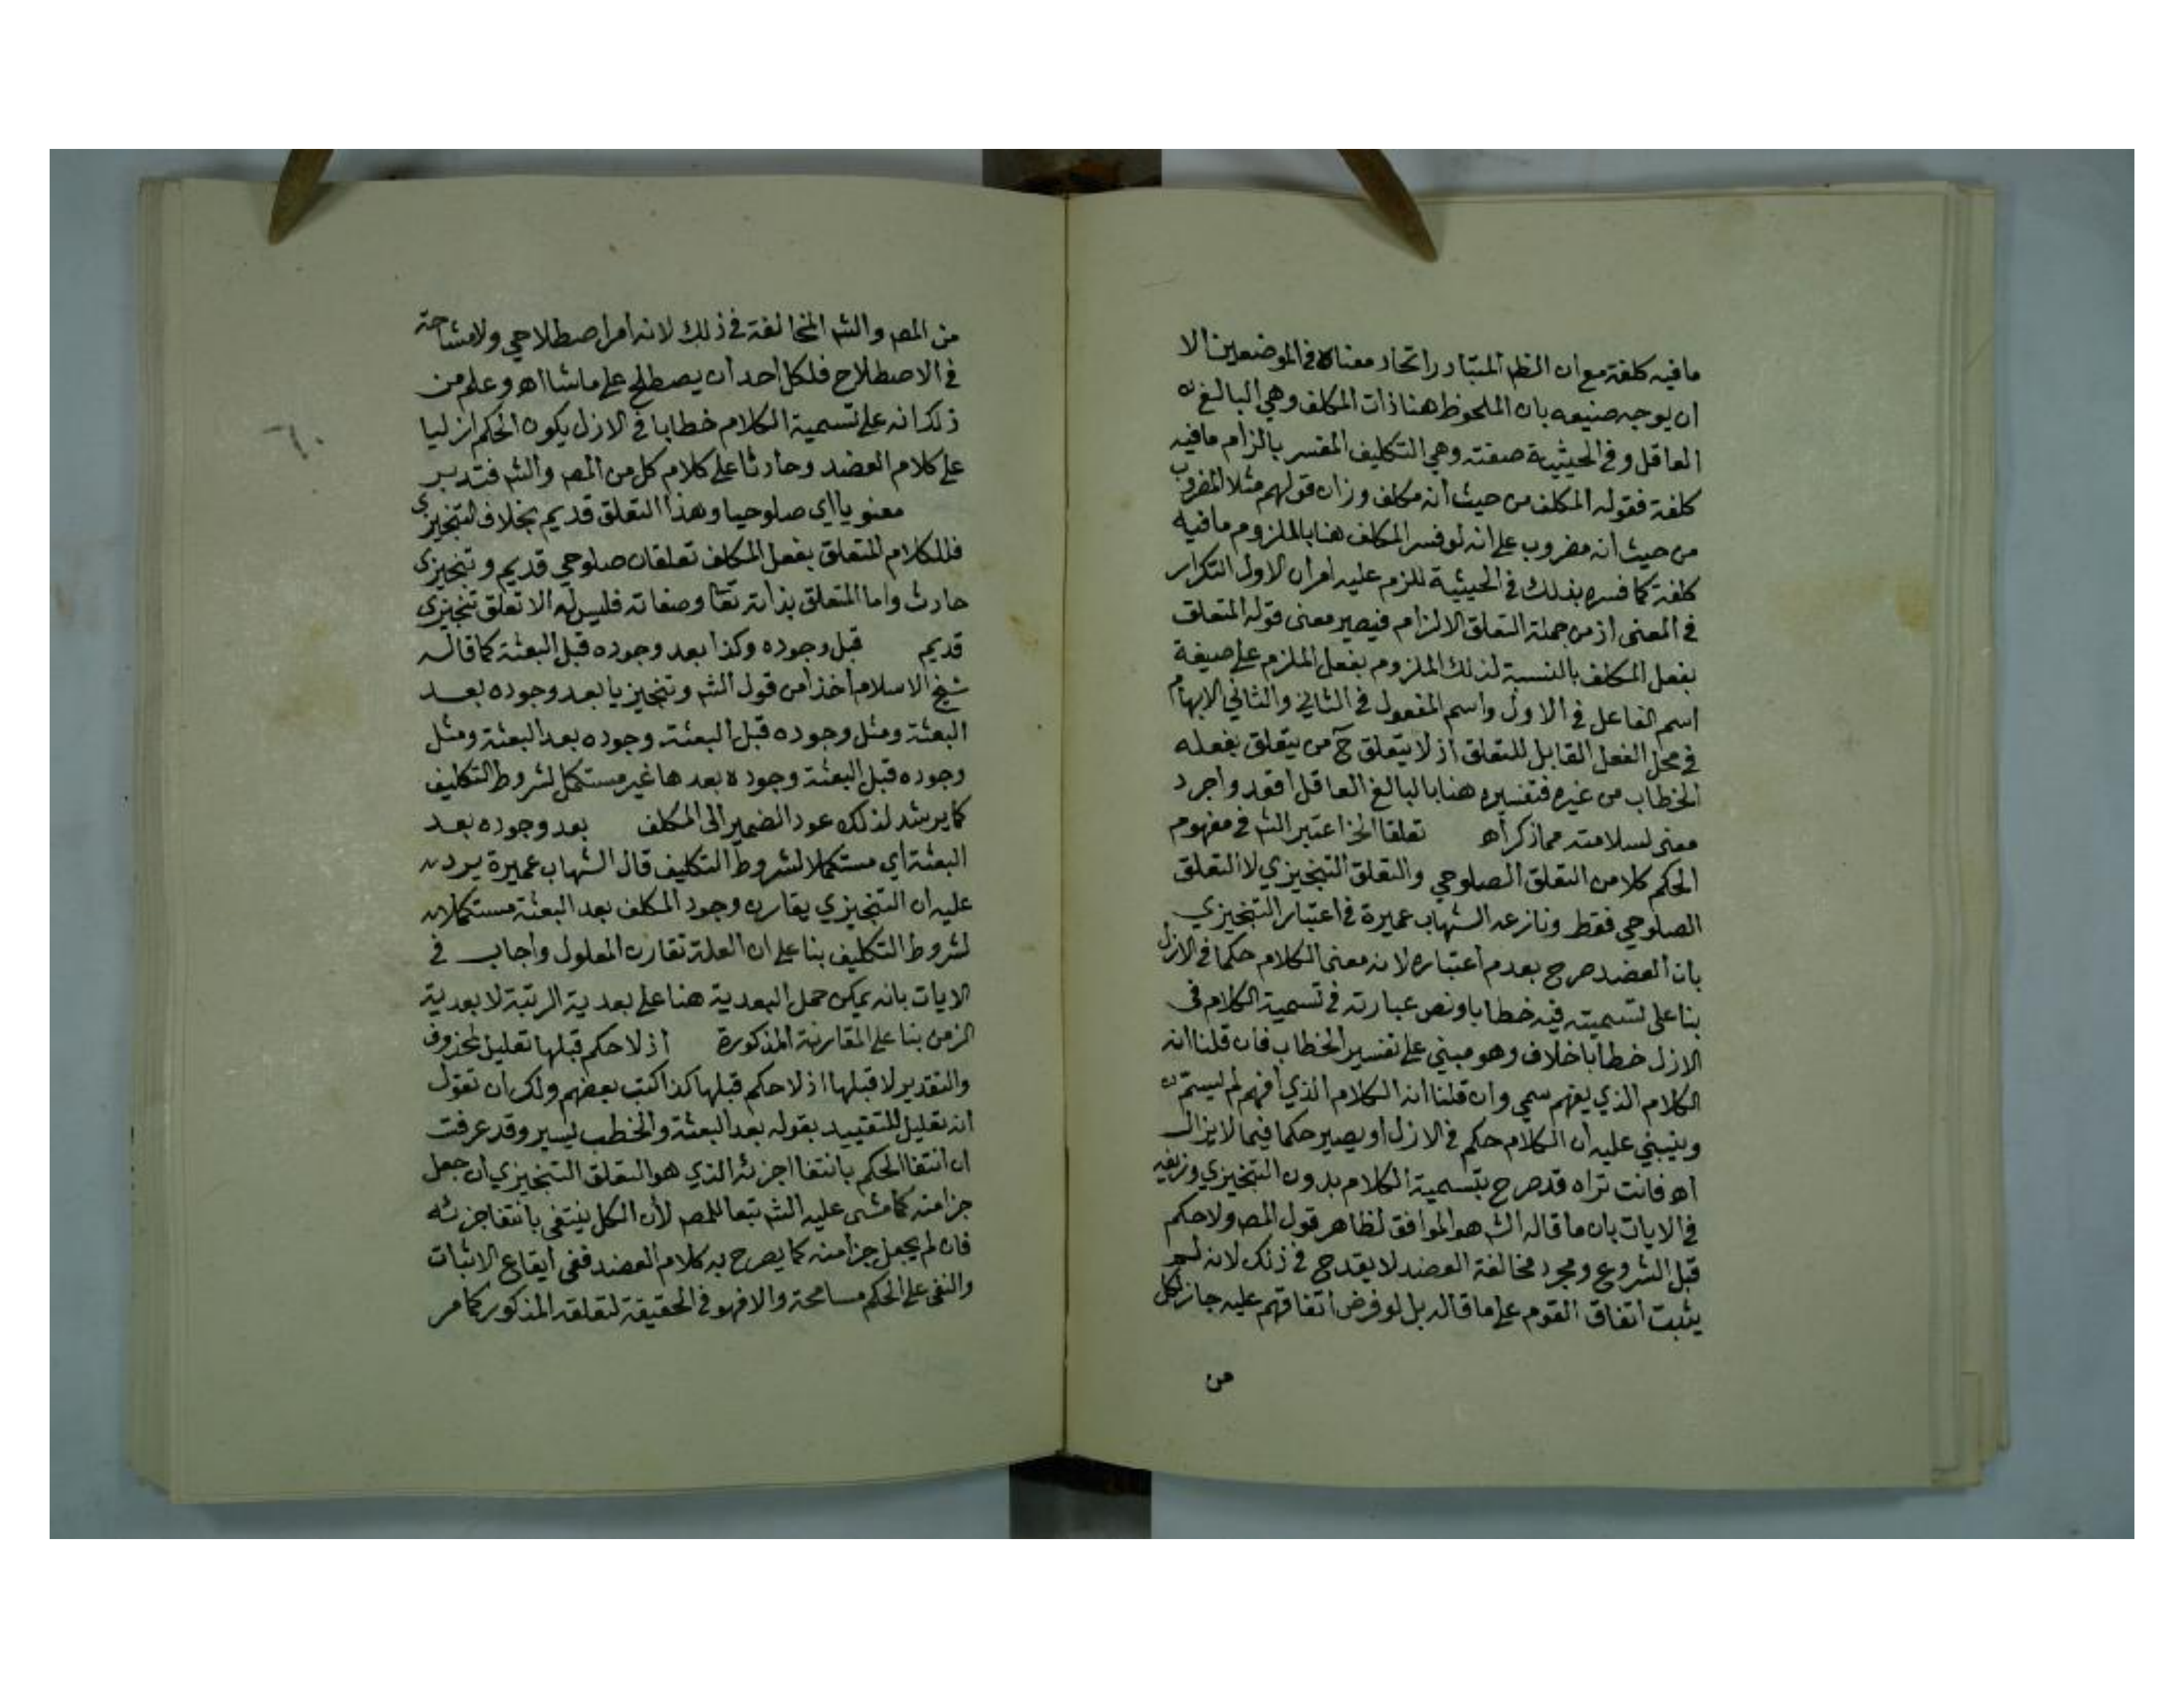 ما فيه كلفة مع ان الظم المتبادر اتحاد معناه في الموضعين الا
ان يوجه صنيعه بان الملحوظ هنا ذات المكلف وهي البالغ
العاقل وفي الحيثية صفته وهي التكليف المفسر بالزام ما فيه
كلفة فقوله المكلف من حيث انه مكلف وزان قولهم مثلا المضروب
من حيث انه مضروب على انه لو فسر المكلف هنا بالملزوم ما فيه
كلفة كما فسره بذلك في الحيثية للزم عليه امران الاول التكرار
في المعنى اذ من جملة التعلق الالزام فيصير معنى قوله المتعلق
بفعل المكلف بالنسبة لذلك الملزوم بفعل الملزم على صيغة
اسم الفاعل في الاول واسم المفعول في الثاني والثاني الابهام
في محل الفعل القابل للتعلق اذ لا يتعلق ح من يتعلق بفعله
الخطاب من غيره فتفسيره هنا بالبالغ العاقل اقعد واجرد
معنى لسلامته مما ذكر اه تعلقا الخ اعتبر الش في مفهوم
الحكم كلا من التعلق الصلوحي والتعلق التنجيزي لا التعلق
الصلوحي فقط ونازعه الشهاب عميرة في اعتبار التنجيزي
بان العضد صرح بعدم اعتباره لانه معنى الكلام حكما في الازل
بنا على تسميته فيه خطابا ونص عبارته في تسمية الكلام في
الازل خطابا خلاف وهو مبني على تفسير الخطاب فان قلنا انه
الكلام الذي يفهم سمي وان قلنا انه الكلام الذي افهم لم يسم
وينبني عليه ان الكلام حكم في الازل او يصير حكما فيما لا يزال
اه فانت تراه قد صرح بتسمية الكلام بدون التنجيزي وزيفه
في الايات بان ما قاله الش هو الموافق لظاهر قول المص ولا حكم
قبل الشروع ومجرد مخالفة العضد لا يقدح في ذلك لانه لم
يثبت اتفاق القوم على ما قاله بل لو فرض اتفاقهم عليه جاز لكل
من
من المص والش المخالفة في ذلك لانه امر اصطلاحي ولا مشاحة
في الاصطلاح فلكل احد ان يصطلح على ما شا اه وعلم من
ذلك انه على تسمية الكلام خطابا في الازل يكون الحكم ازليا
على كلام العضد وحادثا على كلام كل من المص والش فتدبر
معنويا اي صلوحيا وهذا التعلق قديم بخلاف التنجيزي
فللكلام المتعلق بفعل المكلف تعلقان صلوحي قديم وتنجيزي
حادث واما المتعلق بذاته تعا وصفاته فليس له الا تعلق تنجيزي
قديم قبل وجوده وكذا بعد وجوده قبل البعثة كما قاله
شيخ الاسلام اخذا من قول الش وتنجيزيا بعد وجوده بعد
البعثة ومثل وجوده قبل البعثة وجوده بعد البعثة ومثل
وجوده قبل البعثة وجوده بعدها غير مستكمل لشروط التكليف
كما يرشد لذلك عود الضمير الى المكلف بعد وجوده بعد
البعثة اي مستكملا لشروط التكليف قال الشهاب عميرة يرد
عليه ان التنجيزي يقارن وجود المكلف بعد البعثة مستكملا
لشروط التكليف بنا على ان العلة تقارن المعلول واجاب في
الايات بانه يمكن حمل البعدية هنا على بعدية الرتبة لا بعدية
الزمن بنا على المقارنة المذكورة اذ لا حكم قبلها تعليل لمحذوف
والتقدير لا قبلها اذ لا حكم قبلها كذا كتب بعضهم ولك ان تقول
انه تعليل للتقييد بقوله بعد البعثة والخطب يسير وقد عرفت
ان انتفا الحكم بانتفا اجزئه الذي هو التعلق التنجيزي ان جعل
جزا منه كما مشى عليه الش تبعا للمص لان الكل ينتفي بانتفا جزئه
فان لم يجعل جزا منه كما يصرح به كلام العضد ففي ايقاع الاثبات
والنفي على الحكم مسامحة والا فهو في الحقيقة لتعلقه المذكور كما مر
٦٠